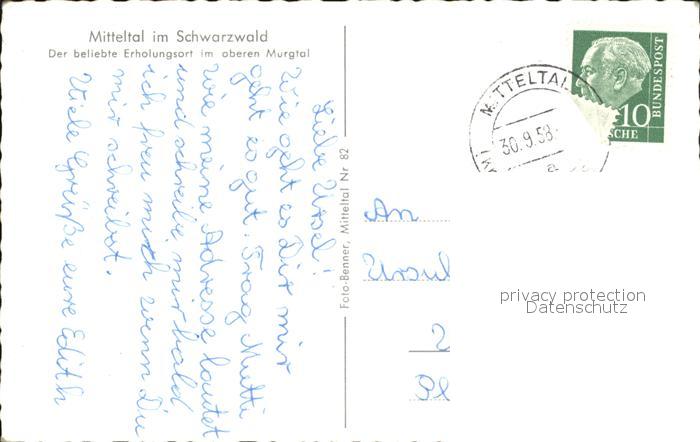 Mitteltal im Schwarzwald
Der beliebte Erholungsort im oberen Murgtal
Liebe Ursel!
Wie geht es Dir mir
geht es gut. Frag Mutti
wie meine Adresse lautet
und schreibe mir bald
ich freu mich wenn Du
mir schreibst.
Viele Grüße eure Edith
Foto-Benner, Mitteltal Nr 82
MITTELTAL
30.9.58
a
10
BUNDESPOST
An
Ursul
privacy protection
Datenschutz